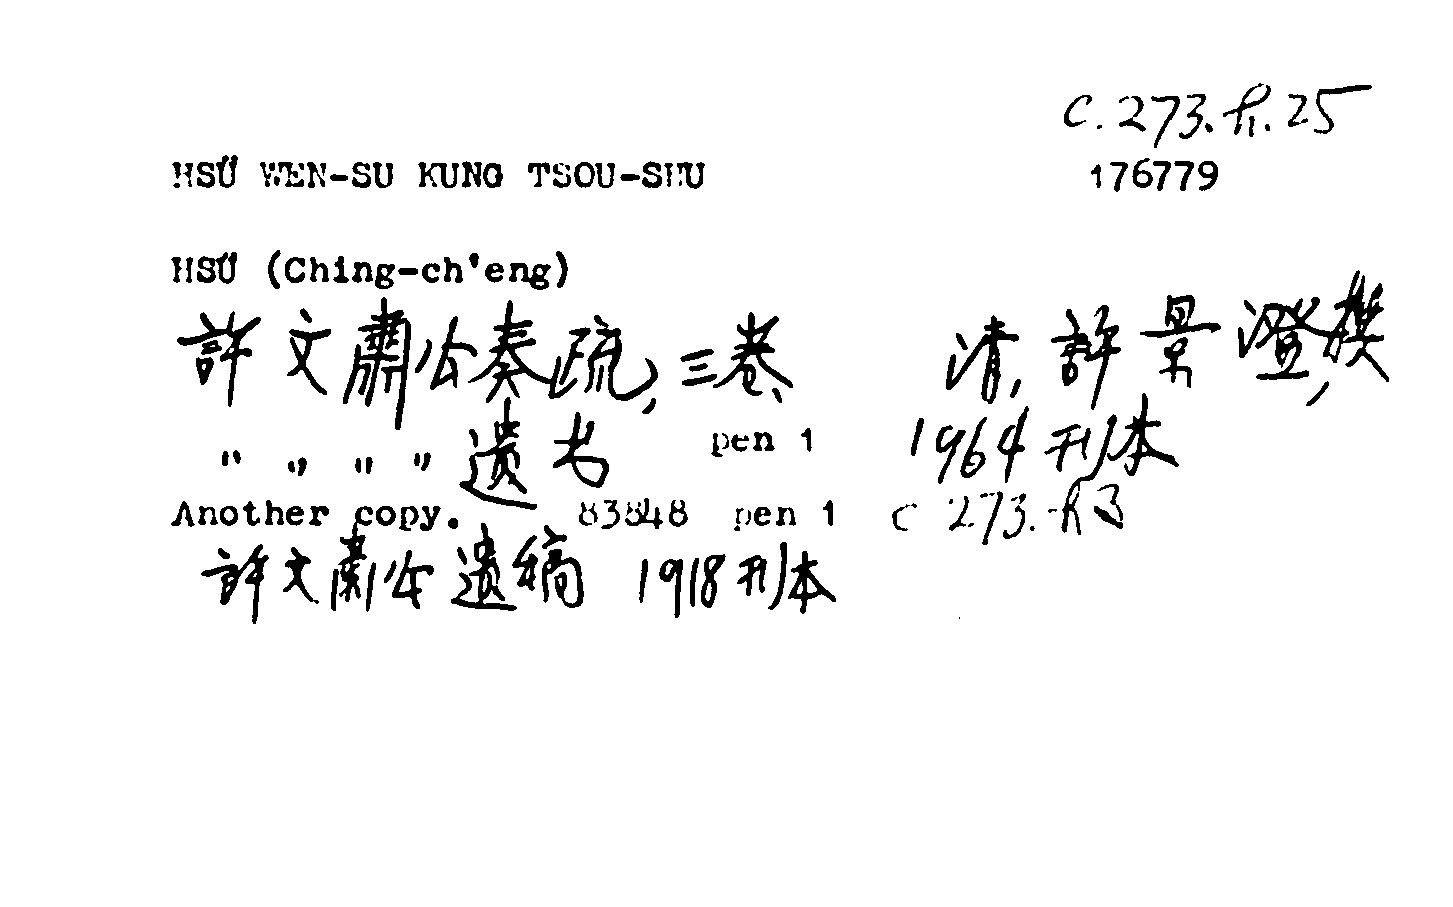 C.273.h.25
HSÜ WEN-SU KUNG TSOU-SHU 176779
HSÜ (Ching-ch'eng)
許文肅公奏疏, 三卷 清, 許景澄, 撰
" " " " 遺书 pen 1 1964 刊本
Another copy. 83848 pen 1 C 273.h 3
許文肅公遺稿 1918 刊本